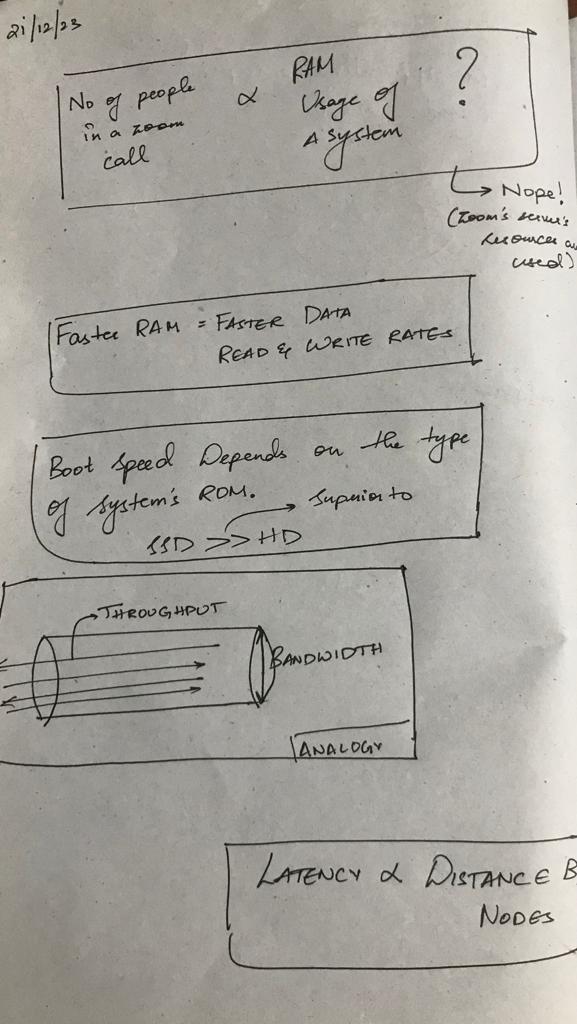 21/12/23
No of people
in a zoom
call
∝
RAM
Usage of
A system
?
Nope!
(Zoom's server's
resources a
used)
Faster RAM = FASTER DATA
READ & WRITE RATES
Boot speed Depends on the type
of system's ROM.
superior to
SSD >> HD
THROUGHPUT
BANDWIDTH
ANALOGY
LATENCY ∝ DISTANCE B
NODES